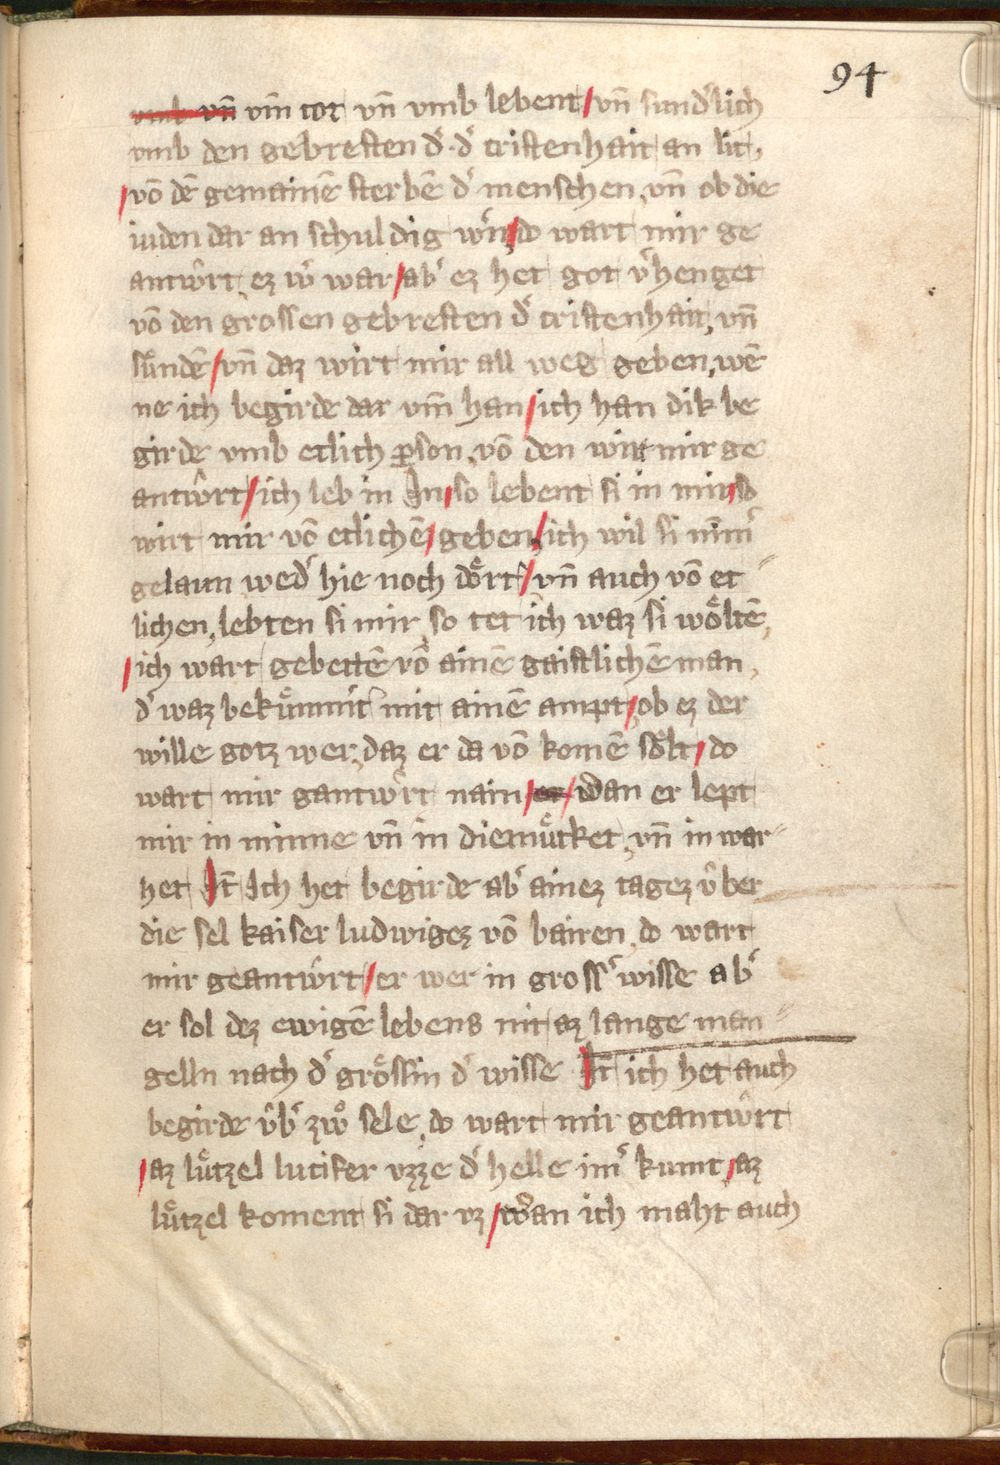 94
vmb vn̄ vm̄ tot vn̄ vmb lebent / vn̄ sundˢlich
vmb den gebresten dˢ · dˢ cristenhait an lit,
/ vō dē gemainē sterbē dˢ menschen, vn̄ ob die
iuden dar an schuldig wˢn / do wart mir ge
antwͤrt, ez wˢ war / abˢ ez het got vˢhenget
vō den grossen gebresten dˢ cristenhait, vn̄
sündē / vn̄ daz wirt mir all weg geben, wē
ne ich begirde dar vm̄ han / ich han dik be
girde vmb etlich ꝑson, vō den wirt mir ge
antwͤrt / ich leb in In / so lebent si in mir / so
wirt mir vō etlichē / geben / ich wil si nim̄ˢ
gelaun wedˢ hie noch dͤort / vn̄ auch vō et
lichen, lebten si mir, so tet ich waz si wͦͤltē,
/ ich wart gebettē vō ainē gaistlichē man,
dˢ waz bekümmˢt mit ainē ampt / ob ez der
wille gotz wer, daz er da vō komē sölt / do
wart mir gantwͤrt nain / er / wan er lept
mir in minne vn̄ in diemütket, vn̄ in war
het It̄ Ich het begirde abˢ ainez tagez über
die sel kaiser ludwigez vō bairen, do wart
mir geantwͤrt / er wer in grossˢ wisse abˢ
er sol dez ewigē lebens nit az lange man
gelln nach dˢ grössin dˢ wisse It̄ ich het auch
begirde übˢ zwͦ sele, do wart mir geantwͤrt
/ az lützel lucifer vzze dˢ helle im̄ˢ kumt / az
lützel koment si dar vz / wan ich maht auch